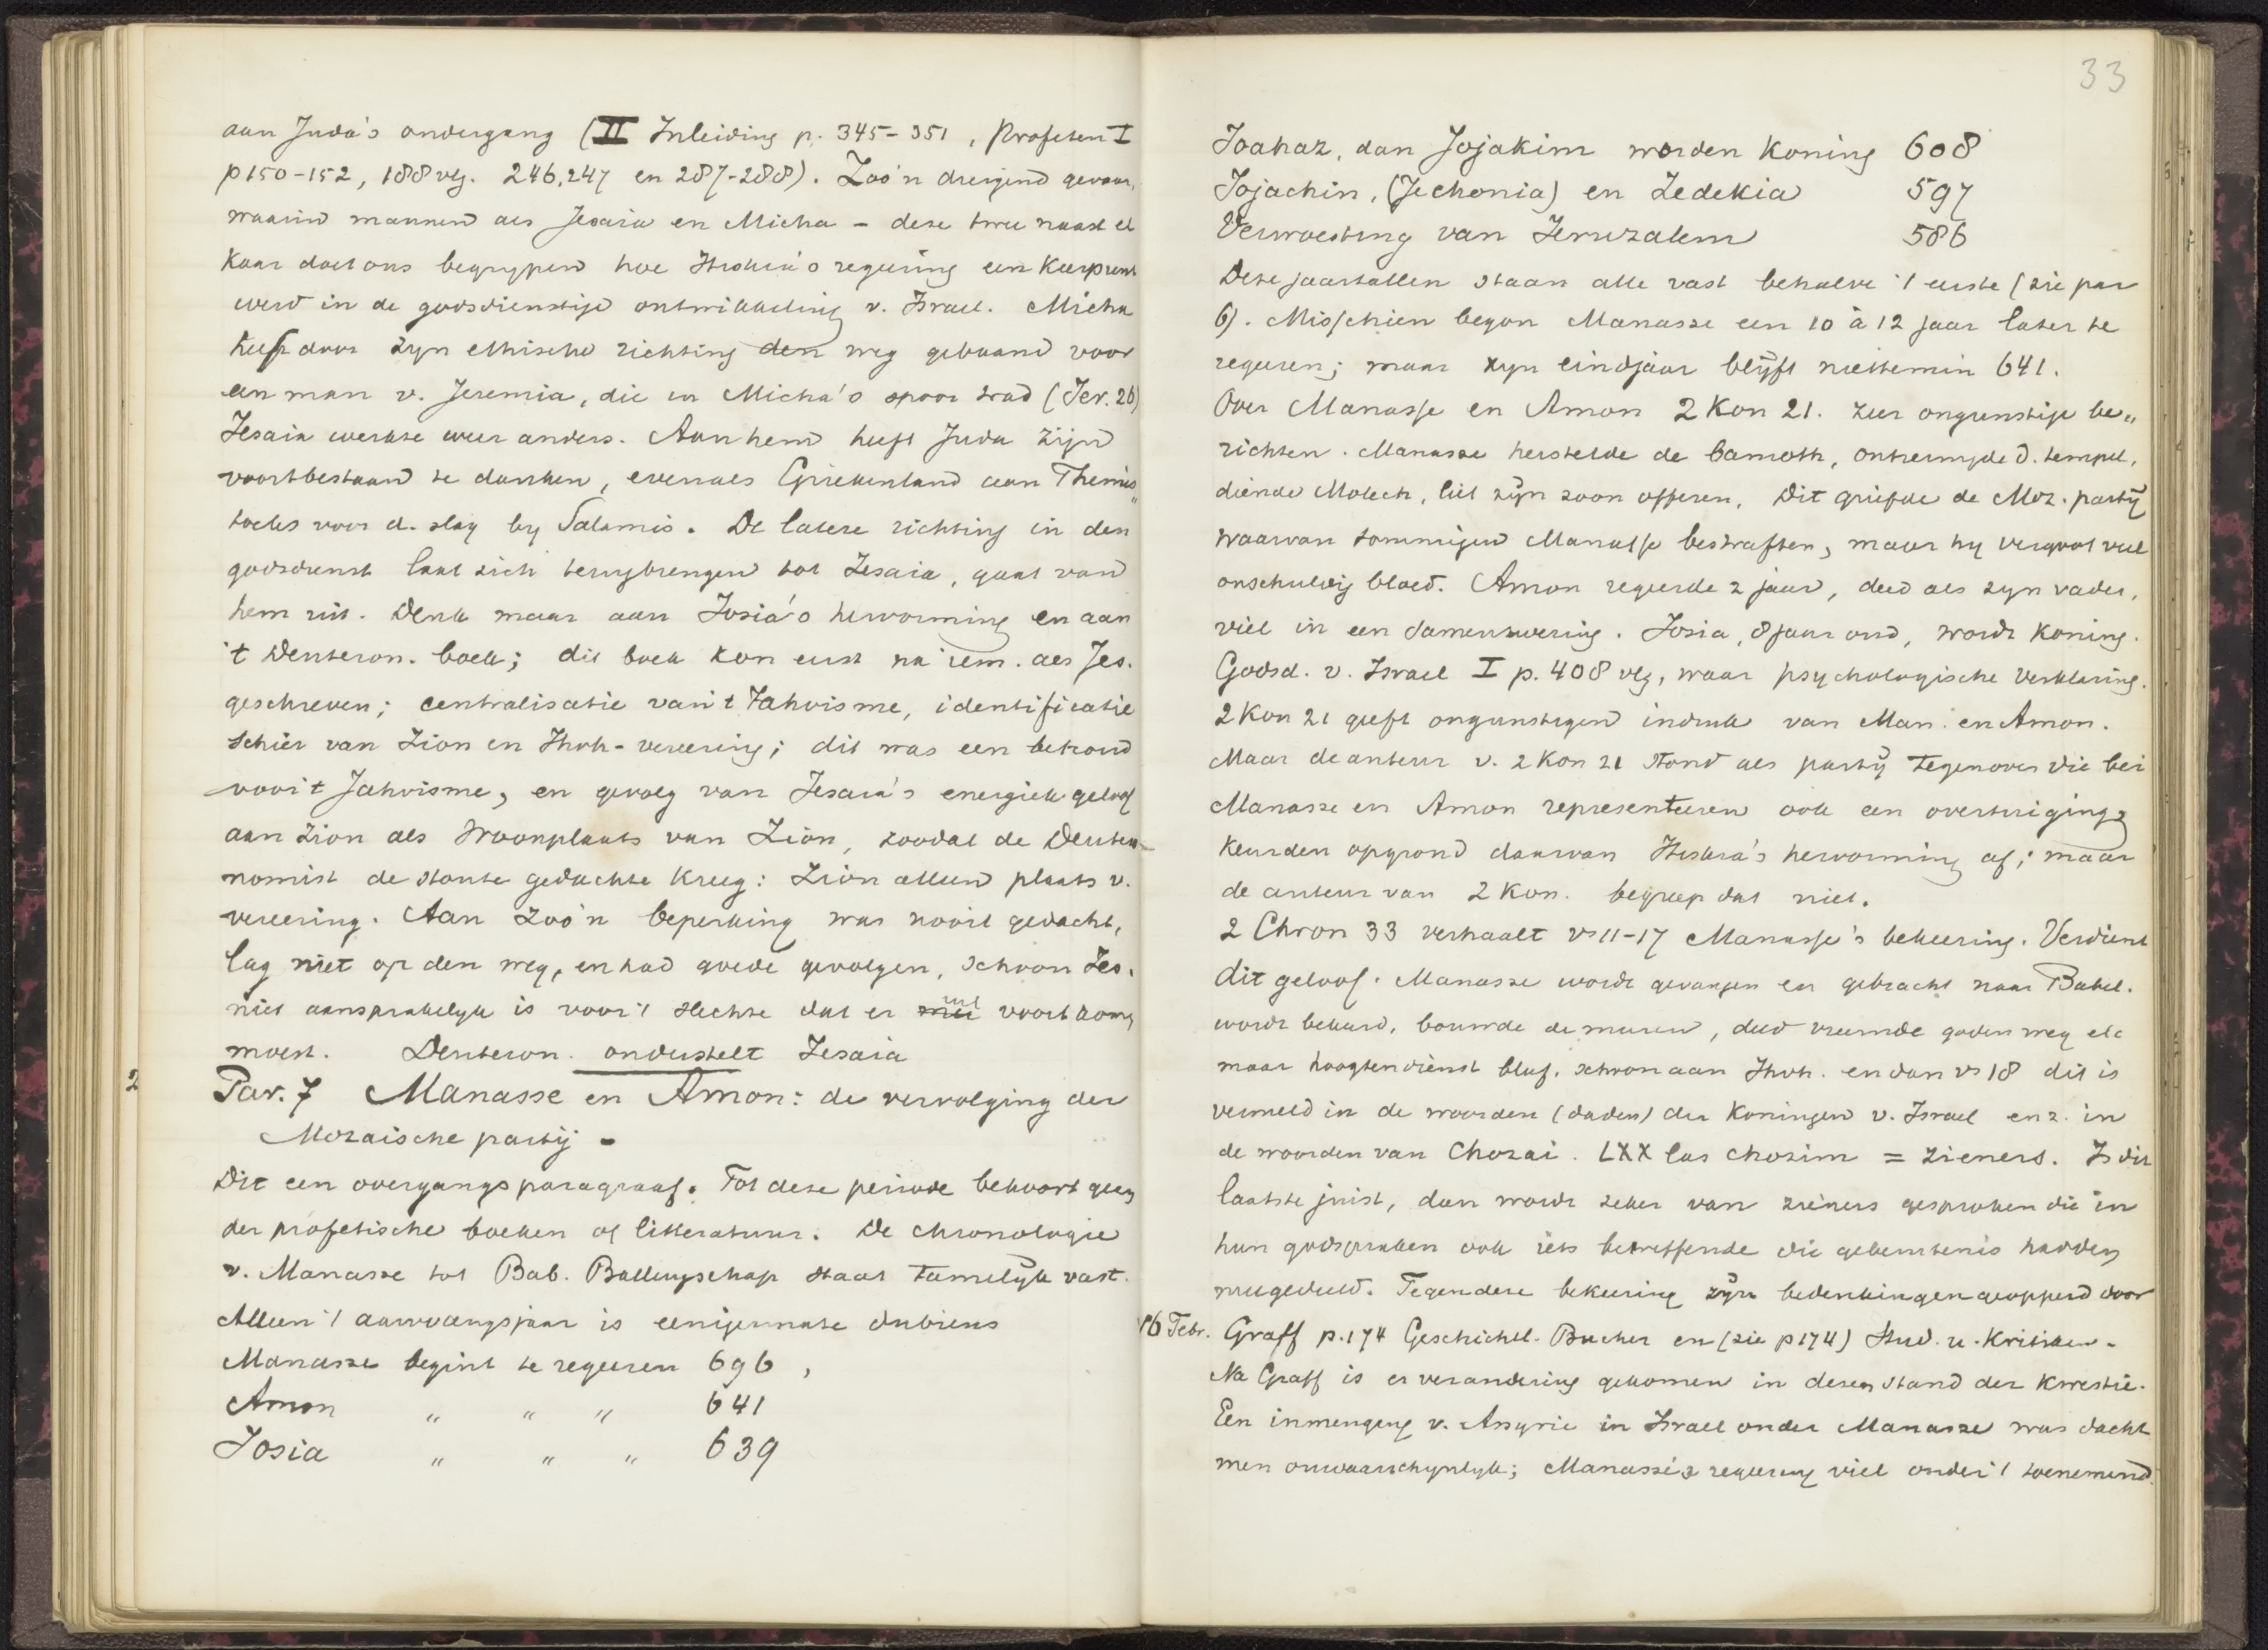 aan Juda's ondergang (II Inleiding p. 345-351, Profeten I
p 150-152, 188 vlg. 246,247 en 287-288). Zoo'n dreigend gevaar,
waarin mannen als Jesaia en Micha - deze twee naast el
kaar doet ons begrypen hoe Hiskia's regeering een keerpunt
werd in de godsdienstige ontwikkeling v. Israel. Micha
heeft door zyn ethische richting den weg gebaand voor
een man v. Jeremia, die in Micha's spoor trad (Jer. 26)
Jesaia werkte weer anders. Aan hem heeft Juda zijn
voortbestaan te danken, evenals Griekenland aan Themis"
tocles voor d. slag by Salamis. De latere richting in den
godsdienst laat zich terugbrengen tot Jesaia, gaat van
hem uit. Denk maar aan Josia's hervorming en aan
't Deuteron. boek; dit boek kon eerst na iem. als Jes.
geschreven; centralisatie van 't Jahvisme, identificatie
schier van Zion en Jhvh-vereering; dit was een
voor 't Jahvisme, en gevolg van Jesaia's energiek geloof
aan Zion als Woonplaats van Zion, zoodat de Deutero-
nomist de stoute gedachte kreeg: Zion alleen plaats v.
vereering. Aan zoo'n beperking was nooit gedacht,
lag niet op den weg, en had goede gevolgen, schoon Jes.
niet aansprakelyk is voor 't slechte dat er uit voortkomen
moest. Deuteron. onderstelt Jesaia
2 Par. 7 Manasse en Amon: de vervolging der
Mozaische partij -
Dit een overgangsparagraaf. Tot deze periode behoort geen
der profetische boeken of litteratuur. De chronologie
v. Manasse tot Bab. Ballingschap staat tamelijk vast.
Alleen 't aanvangsjaar is eenigermate dubieus
Manasse begint te regeeren 696,
Amon " " " 641
Josia " " " 639
33
Joahaz, dan Jojakim worden koning 608
Jojachin, (Jechonia) en Zedekia 597
Verwoesting van Jeruzalem 586
Deze jaartallen staan alle vast behalve 't eerste (zie par
6). Misschien begon Manasse een 10 à 12 jaar later te
regeeren; maar zyn eindjaar blijft niettemin 641.
Over Manasse en Amon 2 Kon 21. zeer ongunstige be"
richten. Manasse herstelde de bamoth, ontreinigde d. tempel,
diende Molech, liet zijn zoon offeren, Dit griefde de Moz. partij
waarvan sommigen Manasse bestraften, maar hy vergoot veel
onschuldig bloed. Amon regeerde 2 jaar, deed als zyn vader,
viel in een samenzwering. Josia, 8 jaar oud, wordt koning.
Godsd. v. Israel I p. 408 vlg, waar psychologische verklaring.
2 Kon 21 geeft ongunstigen indruk van Man. en Amon.
Maar de auteur v. 2 Kon 21 stond als partij tegenover die bei
Manasse en Amon representeeren ook een overtuiging &
keurden op grond daarvan Hiskia's hervorming af; maar
de auteur van 2 Kon. begreep dat niet.
2 Chron 33 verhaalt vs 11-17 Manasse's bekeering. Verdient
dit geloof. Manasse wordt gevangen en gebracht naar Babel.
wordt bekeerd, bouwde de muren, deed vreemde goden weg etc
maar hoogtendienst bleef, schoon aan Jhvh. en dan vs 18 dit is
vermeld in de woorden (daden) der Koningen v. Israel enz. in
de woorden van Chozai. LXX las chozim = zieners. Is dit
laatste juist, dan wordt zeker van zieners gesproken die in
hun godspraken ook iets betreffende die gebeurtenis hadden
meegedeeld. Tegen deze bekeering zijn bedenkingen geopperd door
16 Febr. Graff p. 174 Geschichtl. Bucher en (zie p 174) Stud. u. Kritiken.
Na Graff is er verandering gekomen in dezen stand der kwestie.
Een inmenging v. Assyrie in Israel onder Manasse was dacht
men onwaarschynlyk; Manasse's regeering viel onder 't toenemend